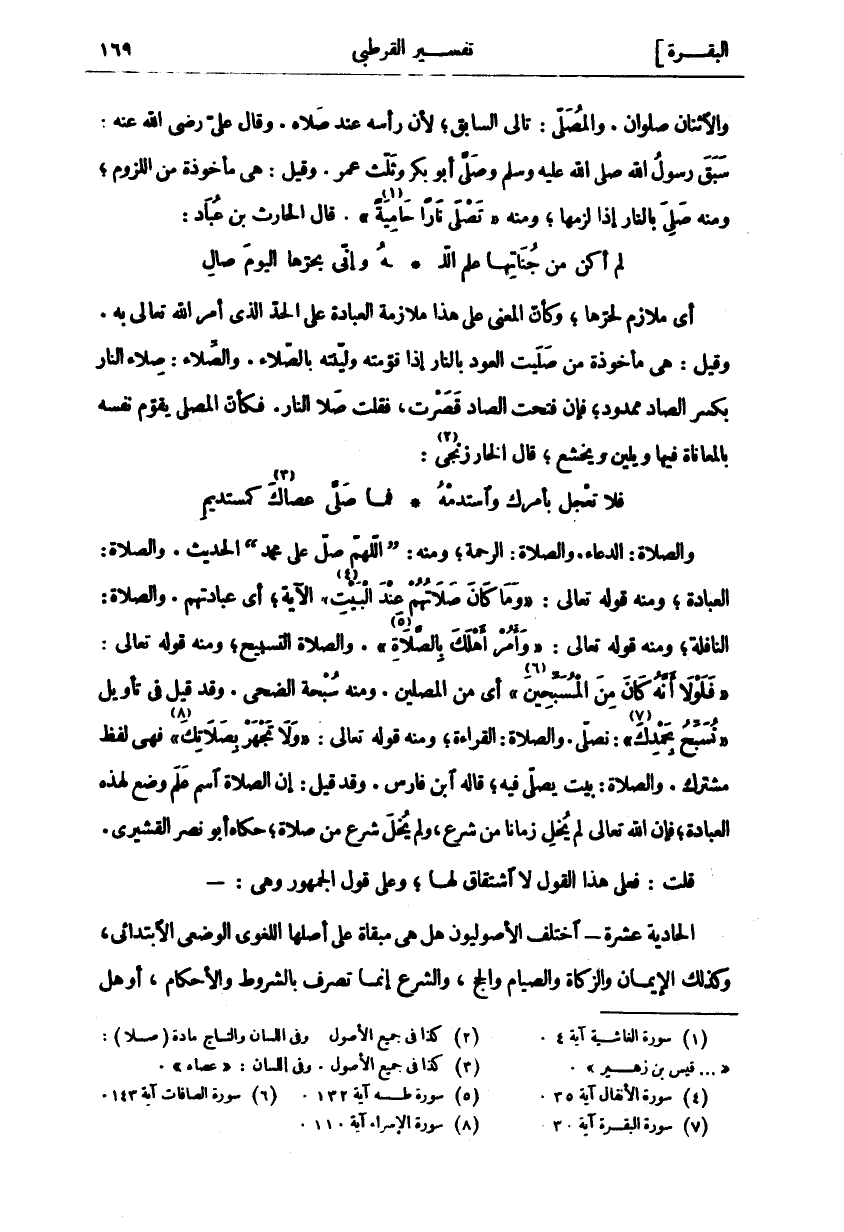 البقـــرة] تفســـير القرطبى ١٦٩
والاثنان صلوان . والمُصَلِّى : تالى السابق؛ لأن رأسه عند صَلَاه . وقال علىّ رضى الله عنه :
سَبَقَ رسولُ الله صلى الله عليه وسلم وصَلَّى أبو بكر وثَلَّث عمر . وقيل : هى مأخوذة من اللزوم ؛
ومنه صَلِىَ بالنار إذا لزمها ؛ ومنه « تَصْلَى نَارًا حَامِيَةً (١) » . قال الحارث بن عُبَاد :
لم أكن من جُنَاتِهـا علم اللـ * ـهُ وإنّى بحرّها اليومَ صالِ
أى ملازم لحرّها ؛ وكأنّ المعنى على هذا ملازمة العبادة على الحدّ الذى أمر الله تعالى به .
وقيل : هى مأخوذة من صَلَيت العود بالنار إذا قوّمته وليّنته بالصِّلاء . والصِّلاء : صِلاء النار
بكسر الصاد ممدود؛ فإن فتحت الصاد قَصَرْت، فقلت صَلَا النار. فكأنّ المصلى يقوّم نفسه
بالمعاناة فيها ويلين ويخشع ؛ قال الخارزنجى (٢) :
فلا تعْجل بأمرك واستدمْهُ * فمـا صَلَّى عصاكَ (٣) كمستديمِ
والصلاة : الدعاء. والصلاة : الرحمة؛ ومنه : "اللّهمّ صلّ على محمد" الحديث . والصلاة :
العبادة ؛ ومنه قوله تعالى : «وَمَا كَانَ صَلَاتُهُمْ عِنْدَ الْبَيْتِ (٤)» الآية؛ أى عبادتهم . والصلاة :
النافلة؛ ومنه قوله تعالى : « وَأْمُرْ أَهْلَكَ بِالصَّلَاةِ (٥) » . والصلاة التسبيح؛ ومنه قوله تعالى :
« فَلَوْلَا أَنَّهُ كَانَ مِنَ الْمُسَبِّحِينَ (٦) » أى من المصلين . ومنه سُبْحة الضحى . وقد قيل فى تأويل
« نُسَبِّحُ بِحَمْدِكَ (٧) » : نصلّى. والصلاة: القراءة؛ ومنه قوله تعالى : «وَلَا تَجْهَرْ بِصَلَاتِكَ (٨)» فهى لفظ
مشترك . والصلاة : بيت يصلَّى فيه؛ قاله ابن فارس . وقد قيل : إن الصلاة اسم عَلَم وضع لهذه
العبادة؛ فإن الله تعالى لم يُخْلِ زمانا من شرع، ولم يُخْلَ شرع من صلاة؛ حكاه أبو نصر القشيرى.
قلت : فعلى هذا القول لا اشتقاق لهـا ؛ وعلى قول الجمهور وهى : —
الحادية عشرة — اختلف الأصوليون هل هى مبقاة على أصلها اللغوى الوضعى الابتدائى،
وكذلك الإيمـان والزكاة والصيام والحج ، والشرع إنمـا تصرف بالشروط والأحكام ، أو هل
(١) سورة الغاشيـة آية ٤ . (٢) كذا فى جميع الأصول وفى اللسان والتـاج مادة (صـلا) :
« ... قيس بن زهـير » . (٣) كذا فى جميع الأصول . وفى اللسان : « عصاه » .
(٤) سورة الأنفال آية ٣٥ . (٥) سورة طـــه آية ١٣٢ . (٦) سورة الصافات آية ١٤٣.
(٧) سورة البقــرة آية ٣٠ . (٨) سورة الإسراء آية ١١٠ .